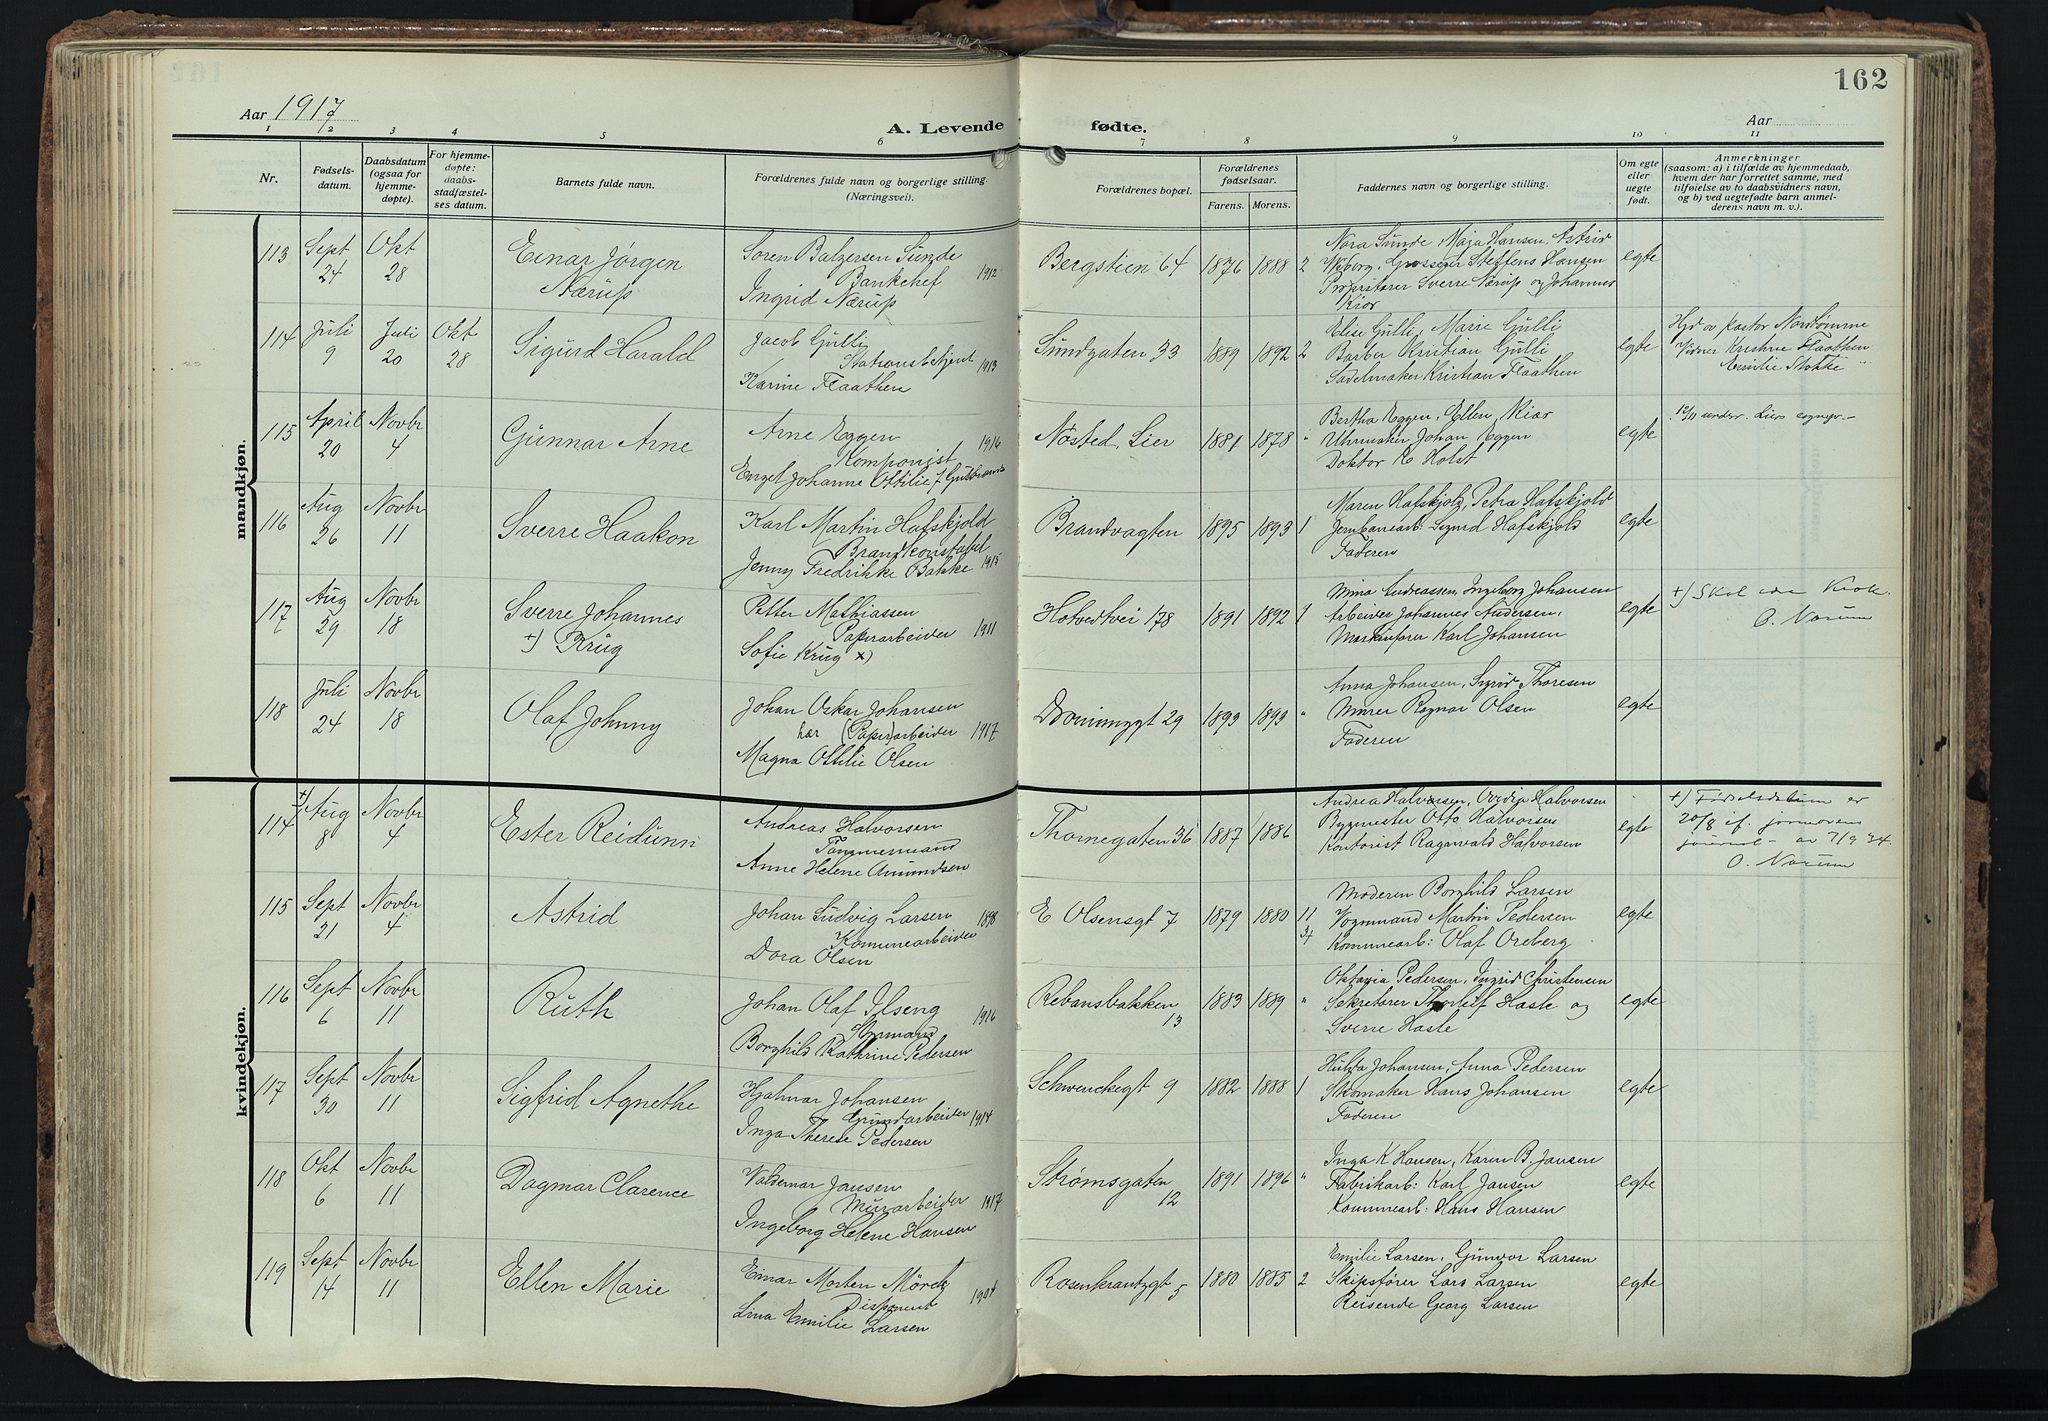 162
Aar 1917
A. Levende fødte.
Aar
1 2 3 4 5 6 7 8 9 10 11
Nr.
Fødsels-
datum.
Daabsdatum
(ogsaa for
hjemme-
døpte).
For hjemme-
døpte:
daabs-
stadfæstel-
ses datum.
Barnets fulde navn.
Forældrenes fulde navn og borgerlige stilling.
(Næringsvei).
Forældrenes bopæl.
Forældrenes
fødselsaar.
Farens. Morens.
Faddernes navn og borgerlige stilling.
Om egte
eller
uegte
født.
Anmerkninger
(saasom: a) i tilfælde av hjemmedaab,
hvem der har forrettet samme, med
tilføielse av to daabsvidners navn,
og b) ved uegtefødte barn anmel-
derens navn m. v.).
mandkjøn.
113
Sept
24
Okt
28
Einar Jørgen
Nærup
Soren Balzersen Sunde
Bankchef 1912
Ingrid Nærup
Bergstien 64
1876 1888 2
Nora Sunde, Maja Hansen, Astrid
Wiborg, Grosserer Steffens Hansen
Proprietærer Sverre Nærup og Johannes
Kiør
egte
114
Juli
9
Juli
20
Okt
28
Sigurd Harald
Jacob Gulli
Stationsbetjent 1913
Karine Flaathen
Sundgaten 33
1889 1892 2
Elise Gulli, Marie Gulli
Barber Kristian Gulli
Sadelmaker Kristian Flaathen
egte
Hjd av Pastor Nordtømme
Vidner Kristine Flaathen
Emilie Stokke
115
April
20
Novbr
4
Gunnar Arne
Arne Eggen
Komponist 1916
Engel Johanne Ottilie
Nøsted, Lier
1881 1878 "
Bertha Eggen, Ellen Kiær
Uhrmaker Johan Eggen
Doktor K Holst
egte
12/11 underr. Liers sognepr.
116
Aug
26
Novbr
11
Sverre Haakon
Karl Martin Hafskjold
Brandkonstabel
Jenny Fredrikke Bakke 1915
Brandvagten
1895 1893 1
Maren Hafskjold, Petra Hafskjold
Jernbanearb: Sigurd Hafskjold
Faderen
egte
117
Aug
29
Novbr
18
Sverre Johannes
+) Krug
Petter Mathiassen
Papirarbeider 1911
Sofie Krug x)
Hotvedtvei 178
1891 1892 4
Mina Andreassen, Ingeborg Johansen
Arbeider Johannes Andersen,
Maskinfører Karl Johansen
egte
+) Skal
O. Norum
118
Juli
24
Novbr
18
Olaf Johnny
Johan Oskar Johansen
her (Papir)arbeider 1917
Magna Ottilie Olsen
Dronninggt 29
1893 1893 "
Anna Johansen, Sigrid Thoresen
Murer Ragnar Olsen
Faderen
egte
kvindekjøn.
114
+)
Aug
8
Novbr
4
Ester Reidunn
Andreas Halvorsen
Tømmermand
Anne Helene Amundsen
Thornegaten 36
1887 1886
Andrea Halvorsen, Ovidia Halvorsen
Bygmester Otto Halvorsen
Kontorist Ragnvald Halvorsen
egte
+) Fødselsdatum er
20/8 if. jormorens
journal av 7/9 34.
O. Norum
115
Sept
21
Novbr
4
Astrid
Johan Ludvig Larsen 1898
Komunearbeider
Dora Olsen
E Olsensgt 7
1879 1880 11
3+
Moderen Borghild Larsen
Vognmand Martin Pedersen
Kommearb: Olaf Oreberg
egte
116
Sept
6
Novbr
11
Ruth
Johan Olaf Ilseng
Styrmand 1916
Borghild Kathrine Pedersen
Rebansbakken
13
1883 1889 "
Oktavia Pedersen, Ingrid Christensen
Sekretærer Thorleif Hasle og
Sverre Hasle
egte
117
Sept
30
Novbr
11
Sigfrid Agnethe
Hjalmar Johansen
Grundarbeider 1914
Inga Therese Pedersen
Schwenckegt 9
1882 1888 1
Hulda Johansen, Anna Pedersen
Skomaker Hans Johansen
Faderen
egte
118
Okt
6
Novbr
11
Dagmar Clarence
Valdemar Jansen
Murarbeider 1917
Ingeborg Helene Hansen
Strømsgaten
12
1891 1896 "
Inga K Hansen, Karen B. Jansen
Fabrikarb: Karl Jansen
Kommearb: Hans Hansen
egte
119
Sept
14
Novbr
11
Ellen Marie
Einar Morten Mörch
Disponent 1904
Lina Emilie Larsen
Rosenkrantzgt 5
1880 1885 2
Emilie Larsen, Gunvor Larsen
Skipsfører Lars Larsen
Reisende Georg Larsen
egte